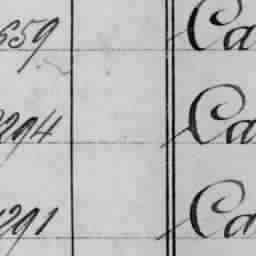 659 Ca
294 Ca
291 Ca